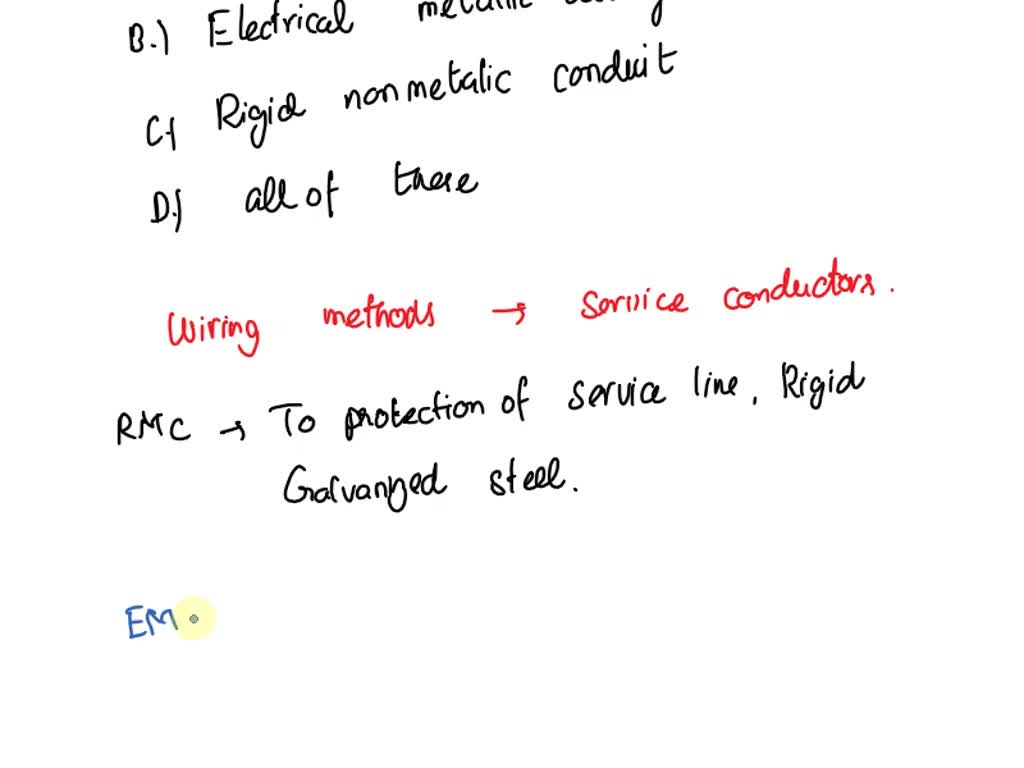 B.) Electrical metallic
C) Rigid nonmetalic conduit
D) all of these
Wiring methods → Service conductors.
RMC → To protection of service line, Rigid
Galvanged steel.
EM